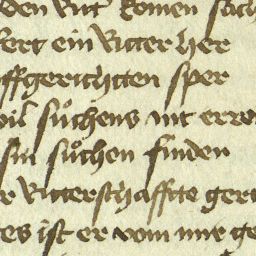 den Rit komen
fert ein Ritter her
ffgerichtten sper
vil sůchens nit
sin sůchen finden
Ritterschafftte
es ist er vom mir ge